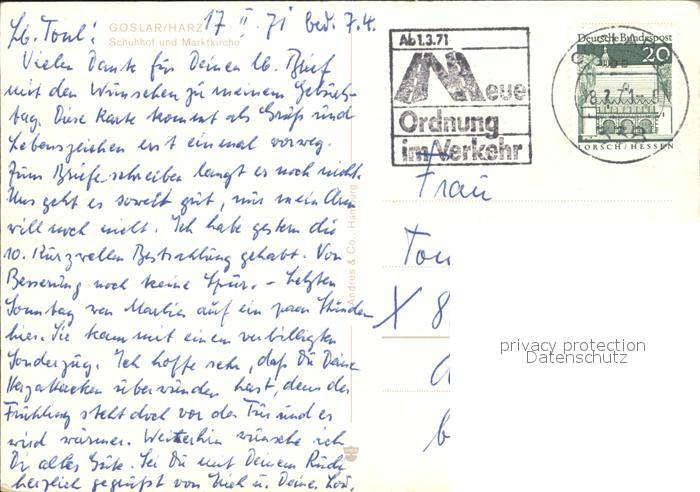 GOSLAR/HARZ
Schuhhof und Marktkirche
17 II. 71 bed. 7.4.
Lb. Toni!
Vielen Dank für Deinen lb. Brief
mit den Wünschen zu meinem Geburts-
tag. Diese Karte kommt als Gruß und
Lebenszeichen erst einmal vorweg.
Zum Briefeschreiben langt es noch nicht.
Uns geht es soweit gut, nur mein Arm
will noch nicht. Ich habe gestern die
10. Kurzwellen Bestrahlung gehabt. Von
Besserung noch keine Spur. – Letzten
Sonntag war Martin auf ein paar Stunden
hier. Sie kam mit einem verbilligten
Sonderzug. Ich hoffe sehr, daß Du Deine
Herzattacken überwunden hast, denn der
Frühling steht doch vor der Tür und es
wird wärmer. Weiterhin wünsche ich
Dir alles Gute. Sei Du mit Deinem Rudi
herzlich gegrüßt von u. Deine
Andres & Co., Hamburg
Ab 1.3.71
Neue
Ordnung
im Verkehr
Deutsche Bundespost
20
LORSCH / HESSEN
Frau
Ton
X 8
privacy protection
Datenschutz